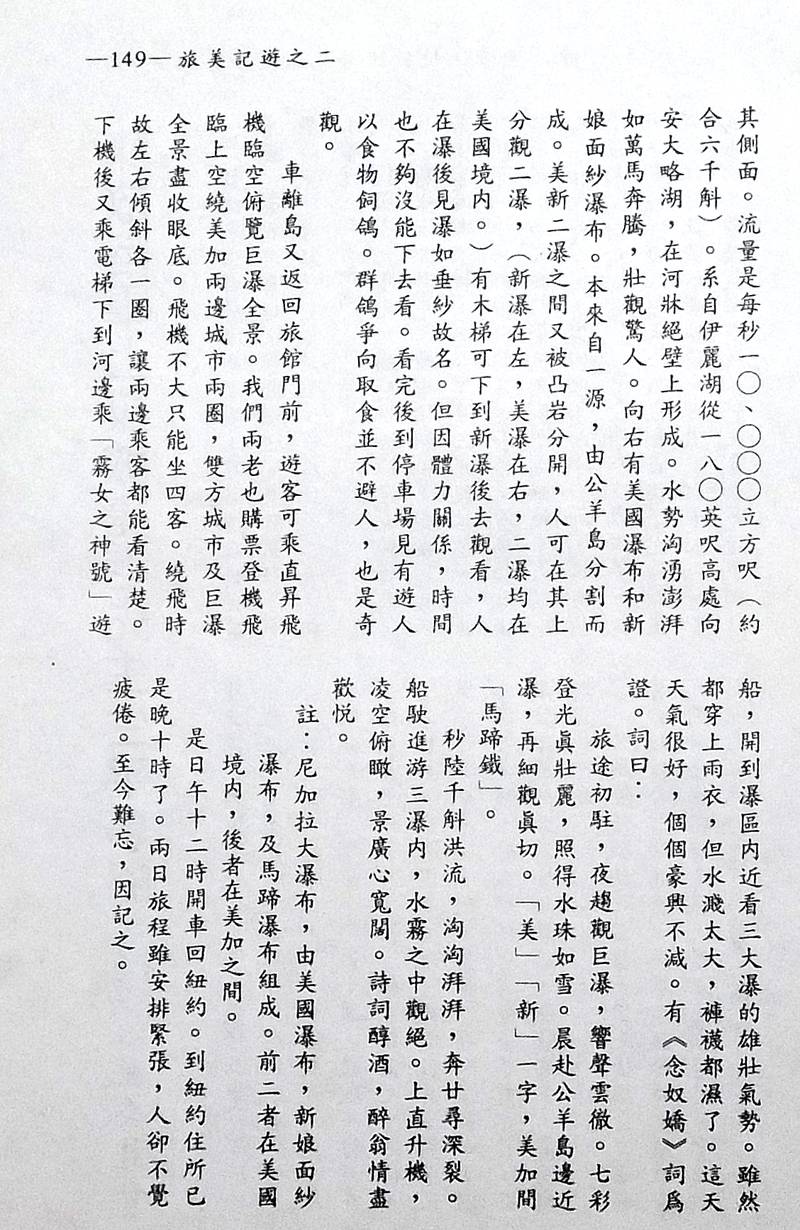 —149— 旅美記遊之二
其側面。流量是每秒一〇、〇〇〇立方呎（約
合六千斛）。系自伊麗湖從一八〇英呎高處向
安大略湖，在河牀絕壁上形成。水勢洶湧澎湃
如萬馬奔騰，壯觀驚人。向右有美國瀑布和新
娘面紗瀑布。本來自一源，由公羊島分割而
成。美新二瀑之間又被凸岩分開，人可在其上
分觀二瀑，（新瀑在左，美瀑在右，二瀑均在
美國境內。）有木梯可下到新瀑後去觀看，人
在瀑後見瀑如垂紗故名。但因體力關係，時間
也不夠沒能下去看。看完後到停車場見有遊人
以食物飼鴿。群鴿爭向取食並不避人，也是奇
觀。
車離島又返回旅館門前，遊客可乘直昇飛
機臨空俯覽巨瀑全景。我們兩老也購票登機飛
臨上空繞美加兩邊城市兩圈，雙方城市及巨瀑
全景盡收眼底。飛機不大只能坐四客。繞飛時
故左右傾斜各一圈，讓兩邊乘客都能看清楚。
下機後又乘電梯下到河邊乘「霧女之神號」遊
船，開到瀑區内近看三大瀑的雄壯氣勢。雖然
都穿上雨衣，但水濺太大，褲襪都濕了。這天
天氣很好，個個豪興不減。有《念奴嬌》詞爲
證。詞曰：
旅途初駐，夜趨觀巨瀑，響聲雲徹。七彩
登光眞壯麗，照得水珠如雪。晨赴公羊島邊近
瀑，再細觀眞切。「美」「新」一字，美加間
「馬蹄鐵」。
秒陸千斛洪流，淘淘湃湃，奔廿尋深裂。
船駛進游三瀑内，水霧之中觀絕。上直升機，
凌空俯瞰，景廣心寬闊。詩詞醇酒，醉翁情盡
歡悅。
註：尼加拉大瀑布，由美國瀑布，新娘面紗
瀑布，及馬蹄瀑布組成。前二者在美國
境内，後者在美加之間。
是日午十二時開車回紐約。到紐約住所已
是晚十時了。兩日旅程雖安排緊張，人卻不覺
疲倦。至今難忘，因記之。